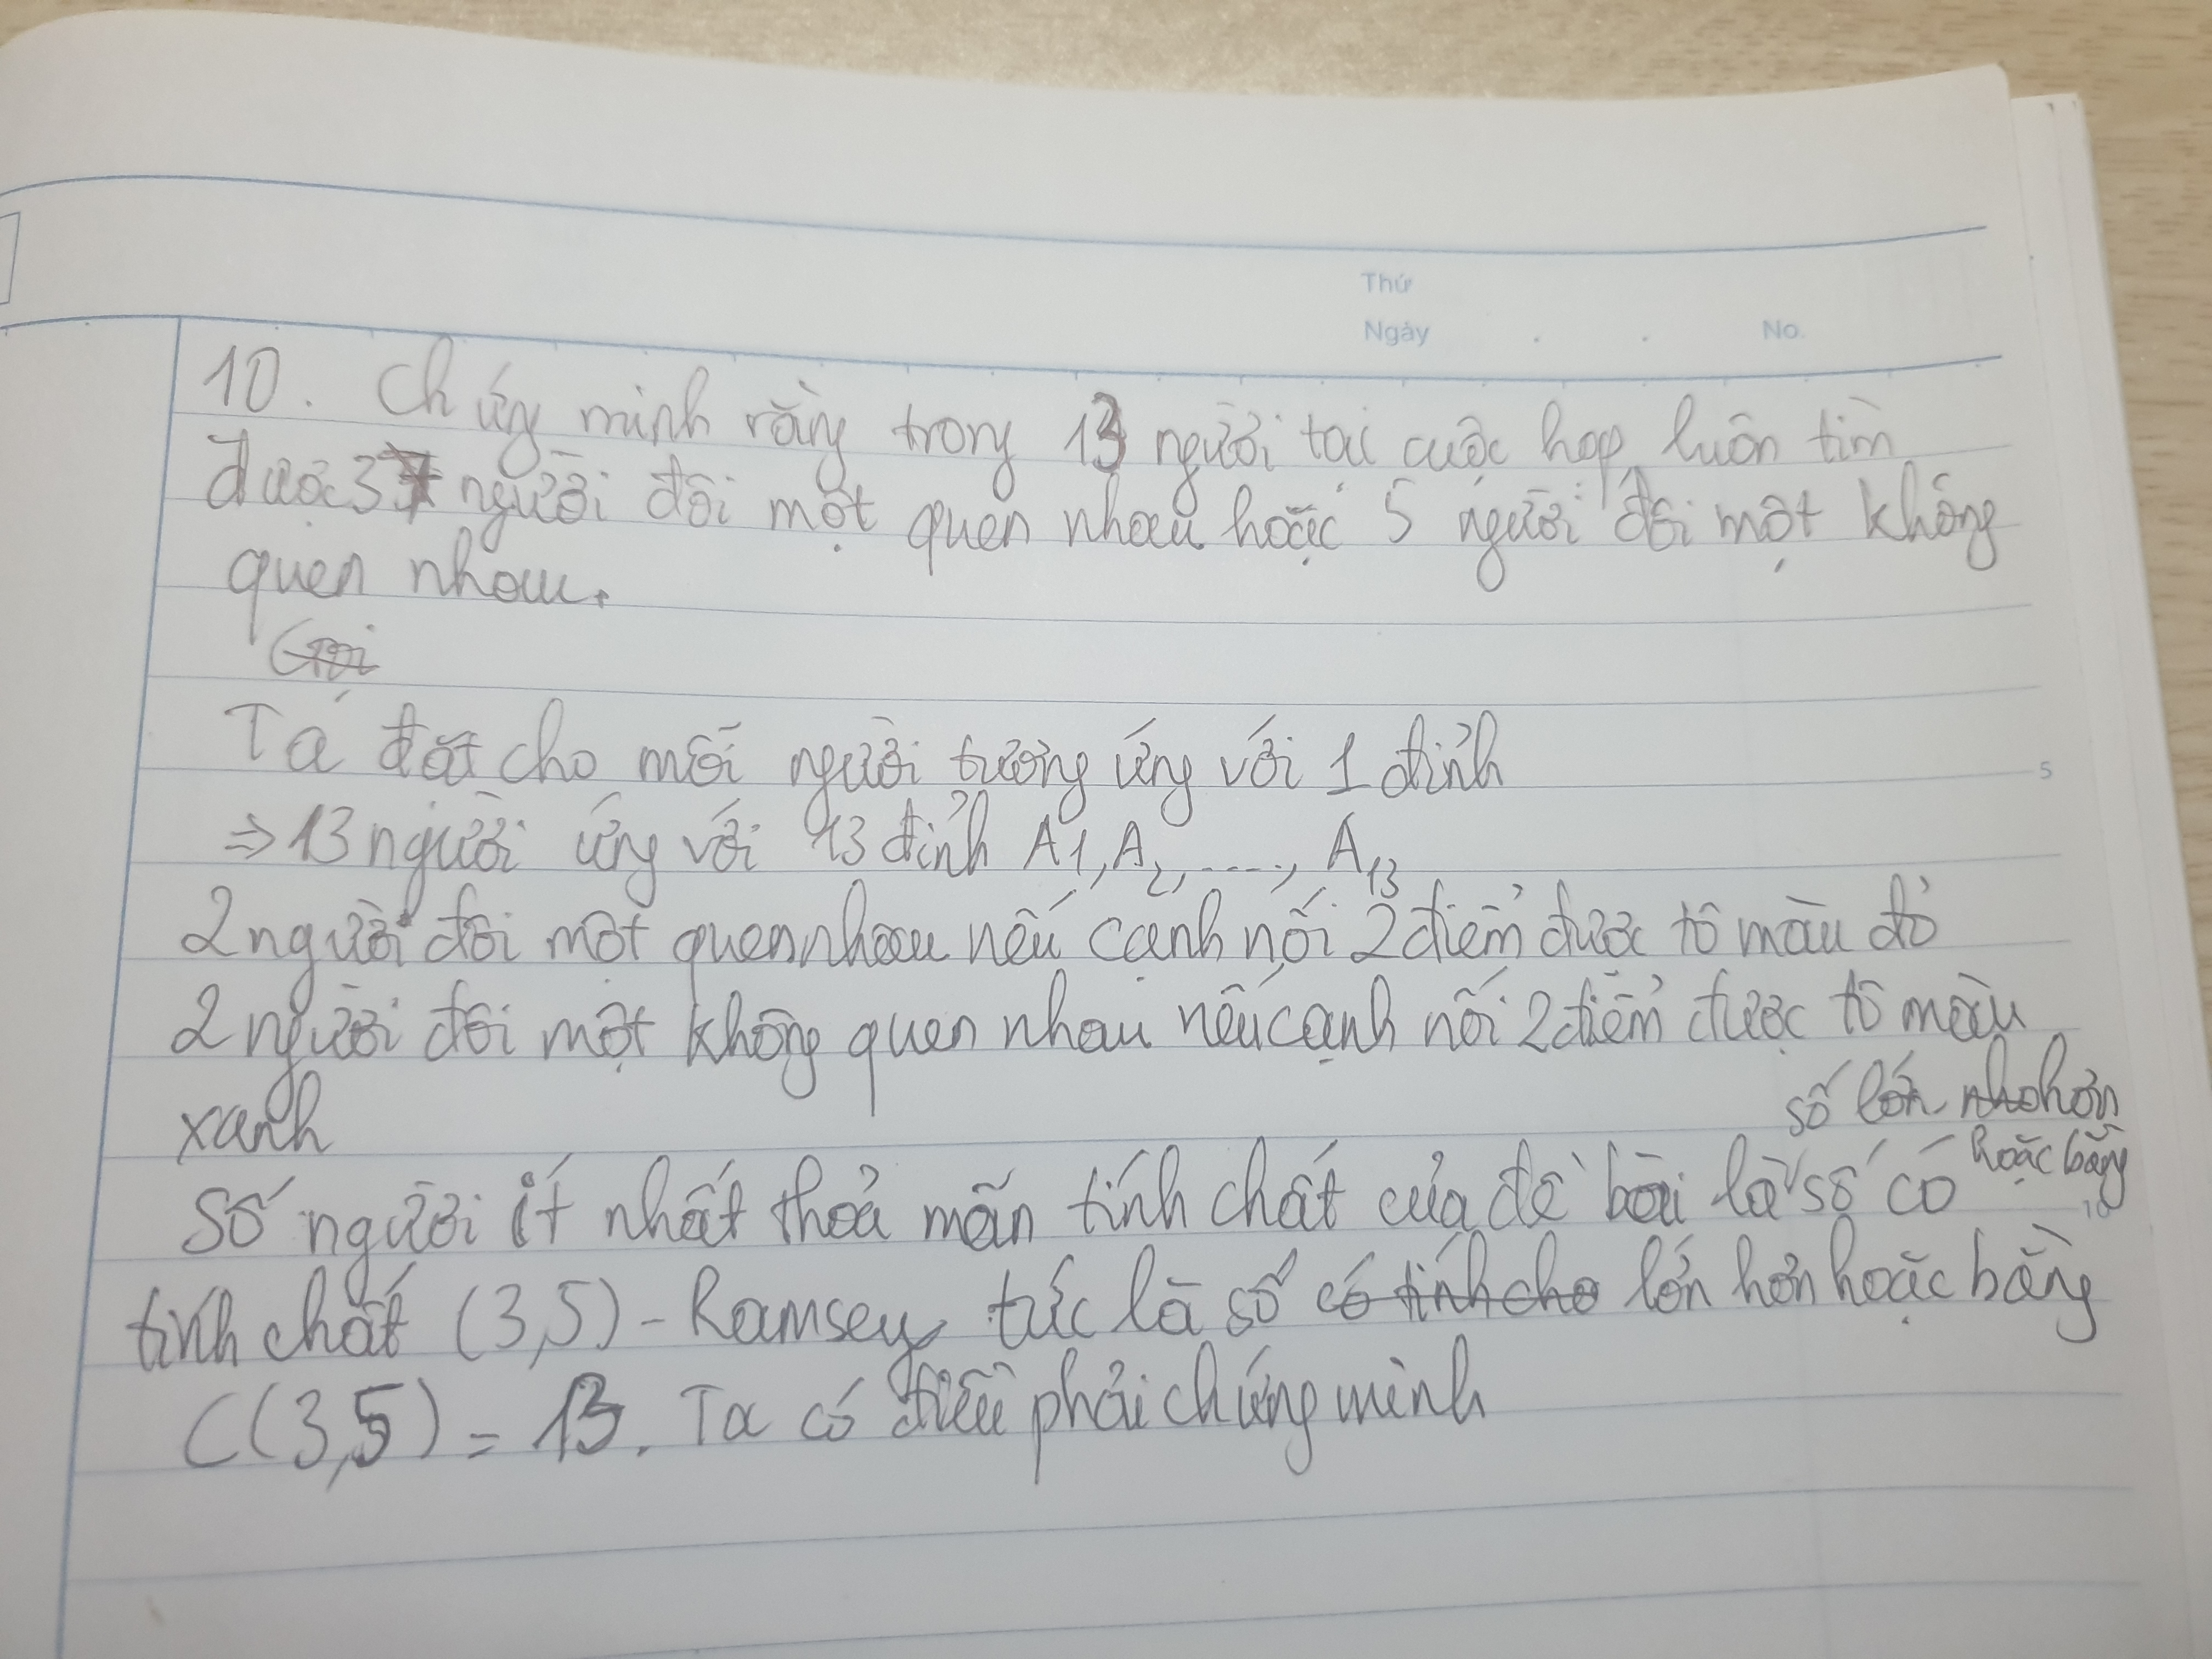 Thứ
Ngày . . No.
10. Chứng minh rằng trong 13 người tại cuộc họp luôn tìm
được 3 người đôi một quen nhau hoặc 5 người đôi một không
quen nhau.
Ta đặt cho mỗi người tương ứng với 1 đỉnh
=> 13 người ứng với 13 đỉnh A1, A2, ..., A13
2 người đôi một quen nhau nếu cạnh nối 2 điểm được tô màu đỏ
2 người đôi một không quen nhau nếu cạnh nối 2 điểm được tô màu
xanh
số lớn hơn
hoặc bằng
Số người ít nhất thỏa mãn tính chất của đề bài là số có
tính chất (3,5)-Ramsey tức là số có lớn hơn hoặc bằng
C(3,5) = 13. Ta có điều phải chứng minh
5
10